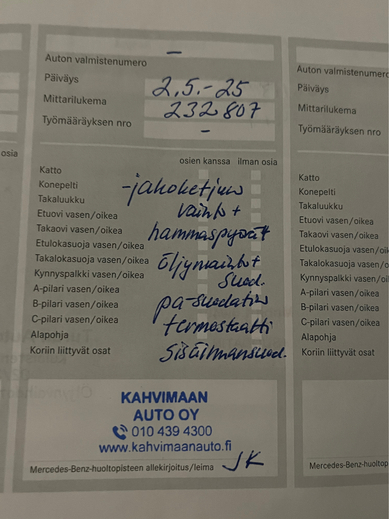 Auton valmistenumero -
Päiväys 2.5.-25
Mittarilukema 232 807
Työmääräyksen nro -
osien kanssa ilman osia
Katto
Konepelti -jakoketjun
Takaluukku vaihto +
Etuovi vasen/oikea
Takaovi vasen/oikea hammaspyörät
Etulokasuoja vasen/oikea
Takalokasuoja vasen/oikea öljynvaihto+
Kynnyspalkki vasen/oikea suod.
A-pilari vasen/oikea
B-pilari vasen/oikea pa-suodatin
C-pilari vasen/oikea termostaatti
Alapohja
Koriin liittyvät osat sisäilmansuod.
KAHVIMAAN
AUTO OY
010 439 4300
www.kahvimaanauto.fi
Mercedes-Benz-huoltopisteen allekirjoitus/leima JK
osia
Auton valmistenumero
Päiväys
Mittarilukema
Työmääräyksen nro
Katto
Konepelti
Takaluukku
Etuovi vasen/oikea
Takaovi vasen/oikea
Etulokasuoja vasen/oikea
Takalokasuoja vasen/oikea
Kynnyspalkki vasen/oikea
A-pilari vasen/oikea
B-pilari vasen/oikea
C-pilari vasen/oikea
Alapohja
Koriin liittyvät osat